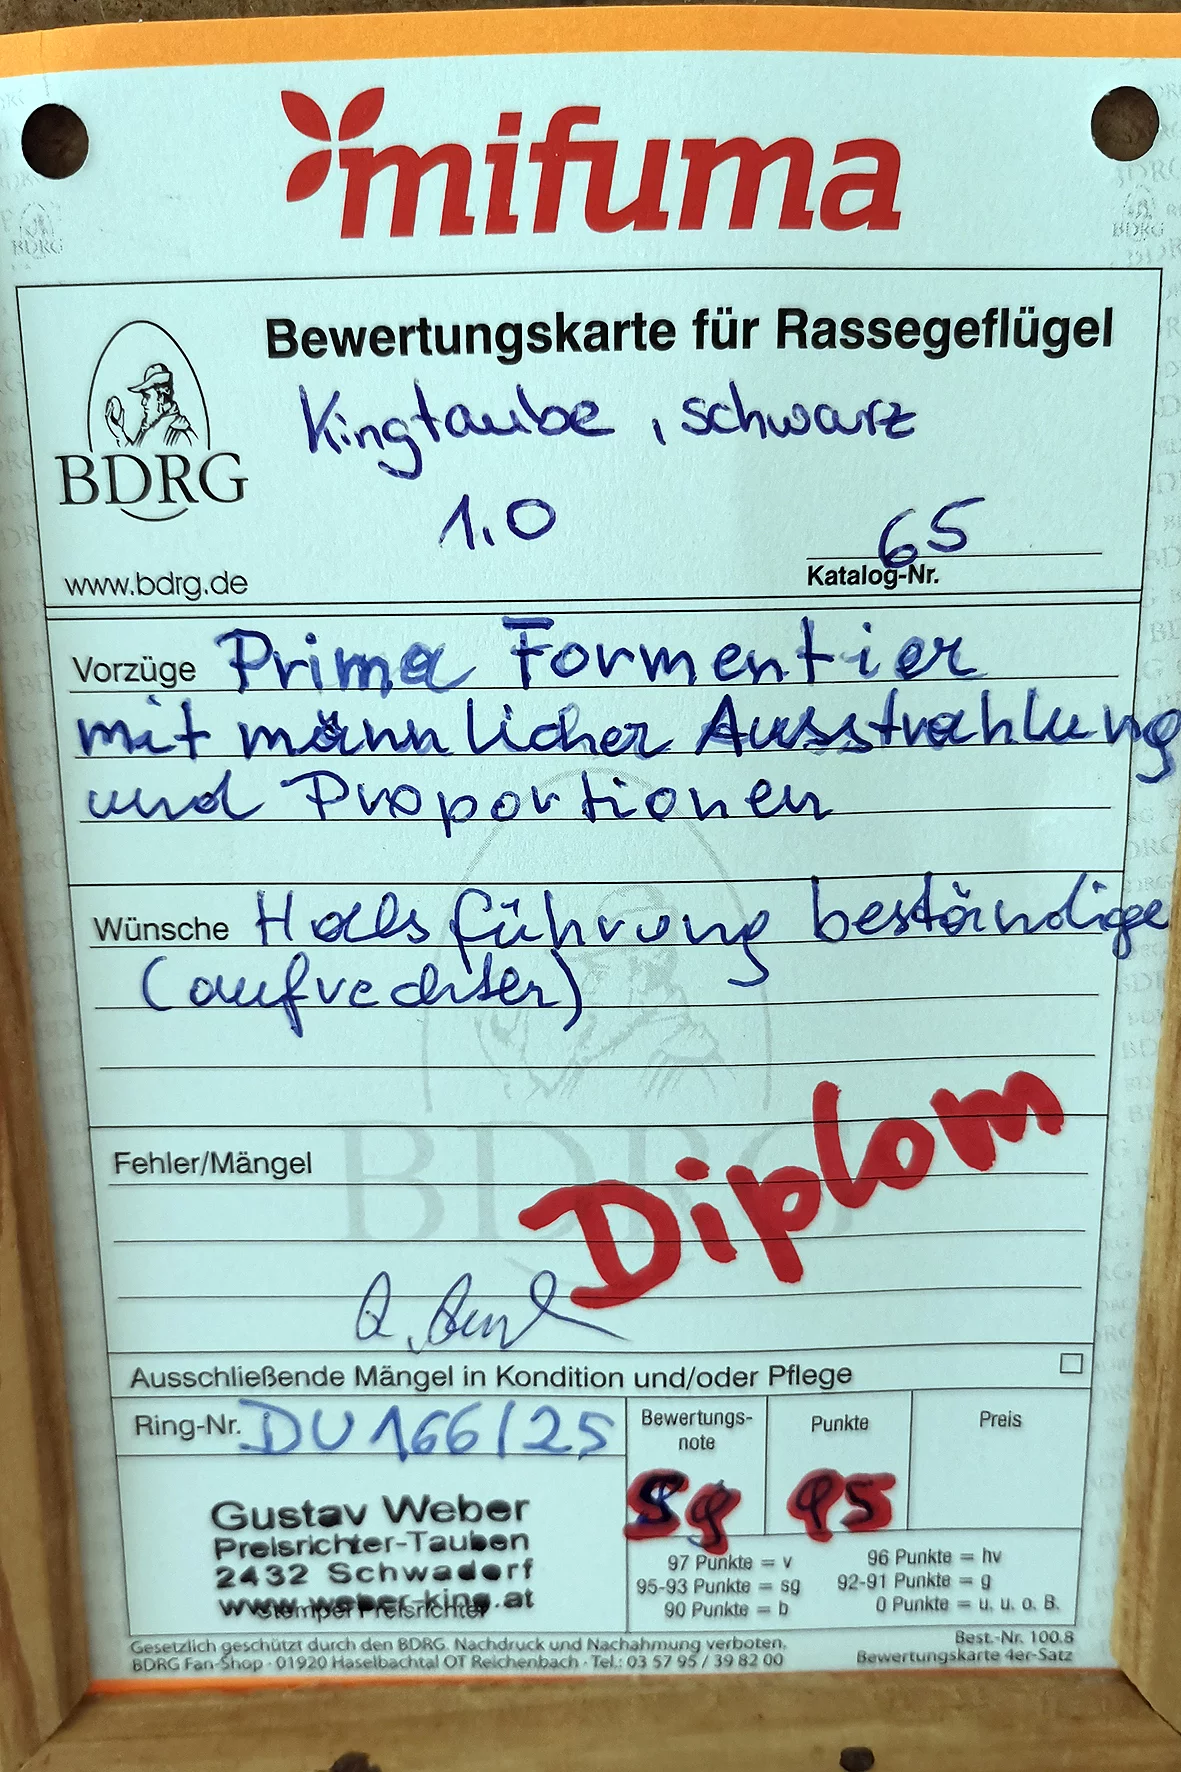 mifuma
Bewertungskarte für Rassegeflügel
Kingtaube, schwarz
BDRG
1.0
65
www.bdrg.de
Katalog-Nr.
Vorzüge Prima Formentier
mit männlicher Ausstrahlung
und Proportionen
Wünsche Halsführung beständige
(aufrechter)
BDRG
Diplom
Fehler/Mängel
Ausschließende Mängel in Kondition und/oder Pflege
Ring-Nr. DU 166/25
Bewertungs-
note
Punkte
Preis
Sg
95
Gustav Weber
Preisrichter-Tauben
2432 Schwadorf
www.weber-king.at
Stempel Preisrichter
97 Punkte = v
96 Punkte = hv
95-93 Punkte = sg
92-91 Punkte = g
90 Punkte = b
0 Punkte = u. u. o. B.
Gesetzlich geschützt durch den BDRG. Nachdruck und Nachahmung verboten.
BDRG Fan-Shop · 01920 Haselbachtal OT Reichenbach · Tel.: 03 57 95 / 39 82 00
Best.-Nr. 100.8
Bewertungskarte 4er-Satz